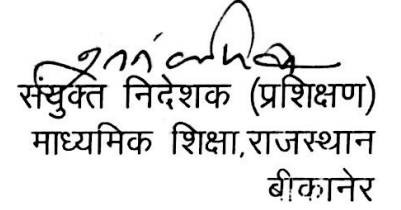 संयुक्त निदेशक (प्रशिक्षण)
माध्यमिक शिक्षा,राजस्थान
बीकानेर